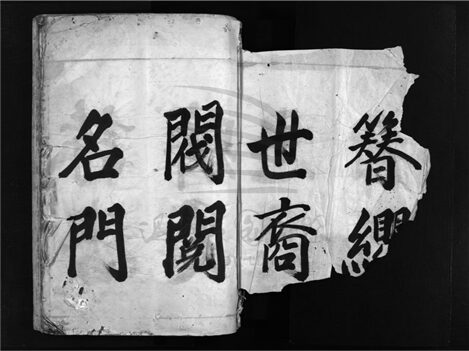 簪纓
世裔
閥閱
名門